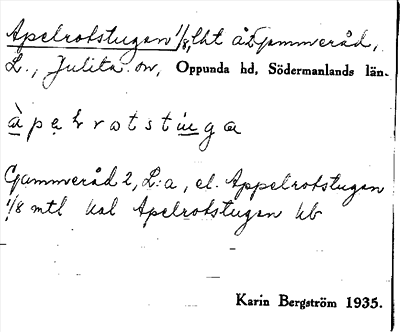 Apelrotstugan 1/8, lht å Gammeråd,
L., Julita sn, Oppunda hd, Södermanlands län.
à p e h r ω t s t u g a
Gammeråd 2, L:a, el. Appelrotstugan
1/8 mtl kal Apelrotstugan kb
Karin Bergström 1935.